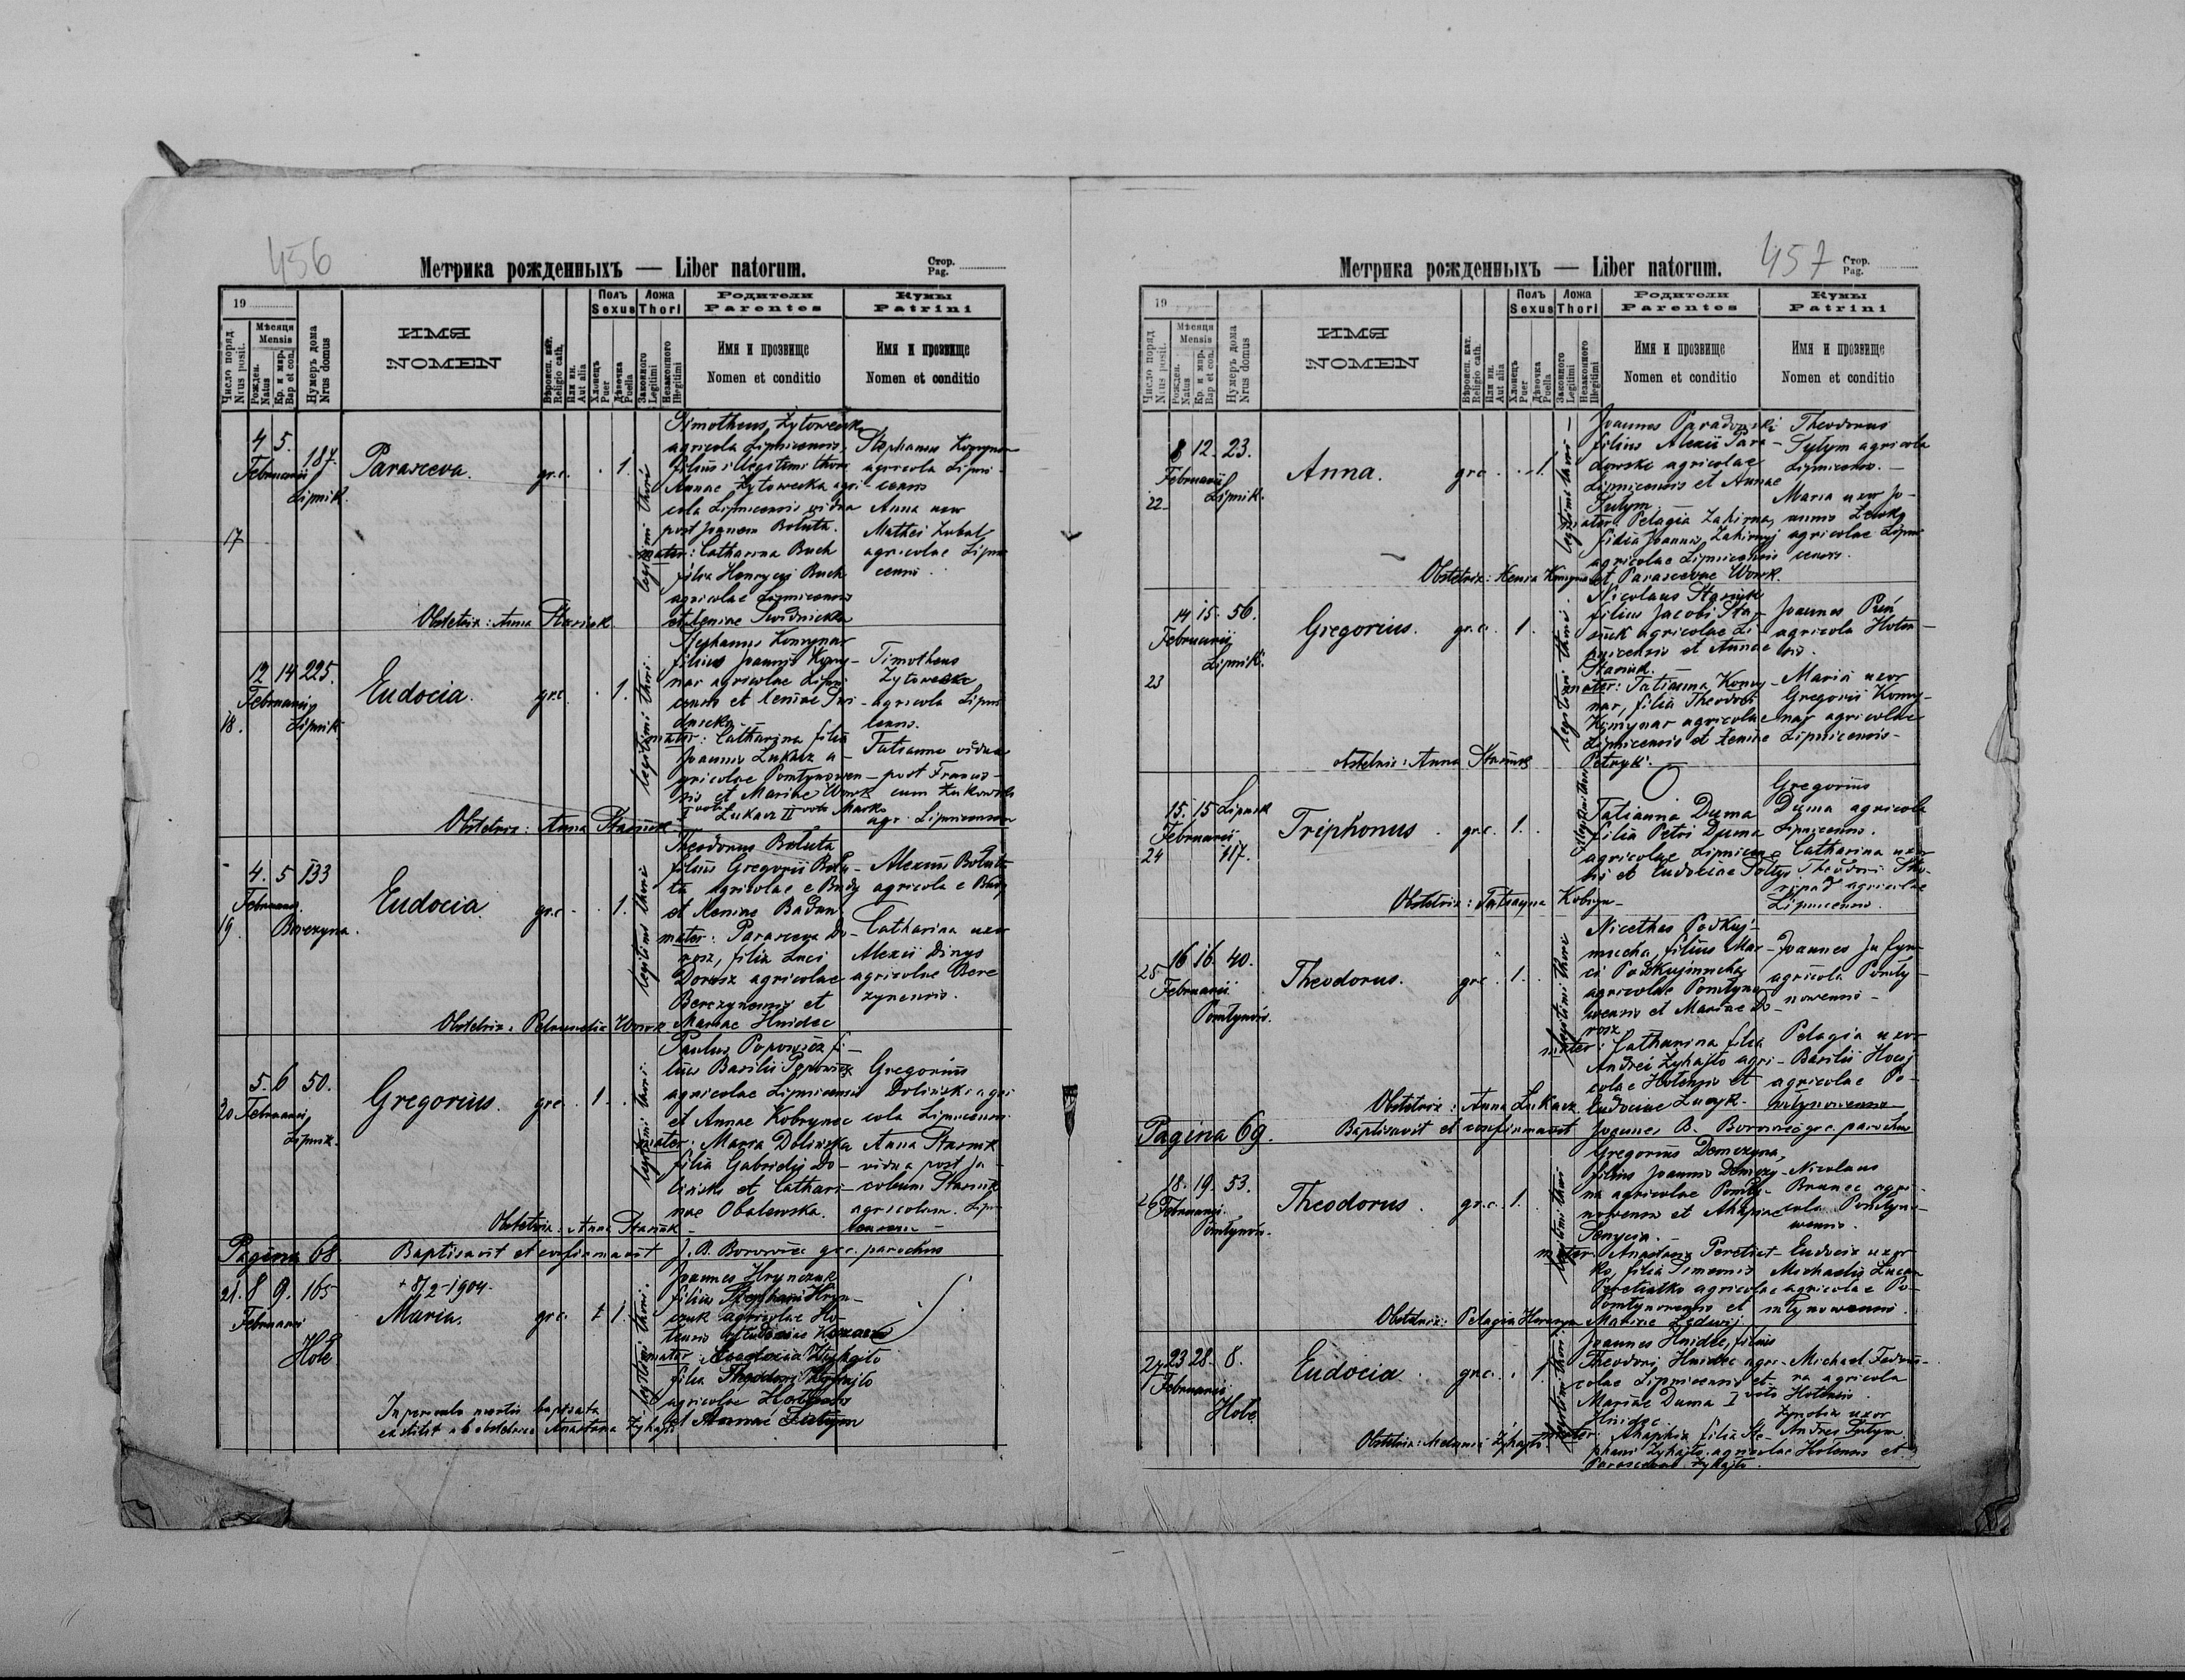 456
Метрика рожденныхъ — Liber natorum.
Стор.
Pag.
19
Число поряд.
Nrus posit.
Мѣсяця
Mensis
Рожден.
Natus
Кр. и мир.
Bap et con.
Нумеръ дома
Nrus domus
ИМЯ
NOMEN
Вѣроисп. кат.
Religio cath.
Или ин.
Aut alia
Полъ
Sexus
Хлопецъ
Puer
Дѣвочка
Puella
Ложа
Thori
Законного
Legitimi
Незаконного
Illegitimi
Родители
Parentes
Имя и прозвище
Nomen et conditio
Кумы
Patrini
Имя и прозвище
Nomen et conditio
17
4 5. 187.
Februarii
Lipnik.
Parasceva.
gr.c. . 1.
legitimi thori
Timotheus Żytowecki
agricola Lipnicensis,
filius illegitimi thori
Annae Żytowecka agri-
cola Lipnicensis vidua
post Joanem Boluta.
mater: Catharina Buch
filia Henryci Buch
agricolae Lipnicensis
et Xeniae Swidnicka
Stephanus Konynar
agricola Lipni-
censis
Anna uxor
Mathei Zubal
agricolae Lipni
censis.
Obstetrix: Anna Stasiuk
18.
12 14 225.
Februarii
Lipnik
Eudocia.
gr.c . 1.
legitimi thori
Stephanus Konynar
filius Joannis Kony-
nar agricolae Lipni
censis et Xeniae Swi-
dnicka.
mater: Catharina filia
Joannis Lukacz a-
gricolae Pomtynowen-
sis et Mariae Wowk
I voto Lukacz II voto Marko
Timotheus
Żytowecki
agricola Lipni
censis.
Tatianna vidua
post Francis-
cum Żukowski
agr. Lipnicensem
Obstetrix: Anna Stasiuk
19.
4. 5 133
Februarii
Berezyna.
Eudocia.
gr.c - . 1.
legitimi thori
Theodorus Boluta
filius Gregorii Bolu-
ta agricolae e Budy
et Xeniae Badan
mater: Parasceva Do-
rosz, filia Luci
Dorosz agricolae
Berezynensis et
Mariae Hnidec
Alexius Boluta
agricola e Budy
Catharina uxor
Alexii Dinys
agricolae Bere
zynensis.
Obstetrix: Petrunelia Wowk
20
5. 6 50.
Februarii
Lipnik.
Gregorius.
gr.c . 1. .
legitimi thori
Paulus Popowicz fi-
lius Basilii Popowicz
agricolae Lipnicensis
et Annae Kobrynec
mater: Maria Dolińska
filia Gabrielis Do-
liński et Cathari-
nae Obalewska.
Gregorius
Doliński agri
cola Lipnicensis.
Anna Stasiuk
vidua post Ja-
cobum Stasiuk
agricolam Lipni
censem -
Obstetrix: Anna Stasiuk -
Pagina 68.
Baptisavit et confirmavit J. B. Borowiec gr.c. parochus
21. 8 9. 165
Februarii
Hole
+ 8/2 - 1904.
Maria.
gr.c. + 1.
legitimi thori.
Joannes Hrynczuk
filius Stephani Hryn-
czuk agricolae Ho-
lensis et Eudociae
mater: Eudocia Żyhajło
filia Theodori Żyhajło
agricolae Holensis
et Annae Sutym
In periculo mortis baptisata
exstitit ab obstetrice Anastasia Żyhajło
457
Метрика рожденныхъ — Liber natorum.
Стор.
Pag.
19
Число поряд
Nrus posit.
Мѣсяця
Mensis
Рожден.
Natus
Кр. и мир.
Bap et con.
Нумеръ дома
Nrus domus
ИМЯ
NOMEN
Вѣроисп. кат.
Religio cath.
Или ин.
Aut alia
Полъ
Sexus
Хлопецъ
Puer
Дѣвочка
Puella
Ложа
Thori
Законного
Legitimi
Незаконного
Illegitimi
Родители
Parentes
Имя и прозвище
Nomen et conditio
Кумы
Patrini
Имя и прозвище
Nomen et conditio
22
8 12. 23.
Februarii
Lipnik.
Anna.
gr.c . . 1.
legitimi thori -
Joannes Paradowski
filius Alexii Para-
dowski agricolae
Lipnicensis et Annae
Sutym
mater: Pelagia Zahirna,
filia Joannis Zahirnyj
agricolae Lipnicensis
et Parascevae Wowk.
Theodorus
Sytym agricola
Lipnicensis. -
Maria uxor Jo-
annis Lewko
agricolae Lipni
censis.
Obstetrix: Xenia Konynar
23
14 15. 56.
Februarii
Lipnik.
Gregorius.
gr.c. 1.
legitimi thori
Nicolaus Stasiuk
filius Jacobi Sta-
siuk agricolae Li-
pnicensis et Annae
Stasiuk.
mater: Tatianna Kony-
nar, filia Theodori
Konynar agricolae
Lipnicensis et Xeniae
Petryk.
Joannes
agricola Holen-
sis.
Maria uxor
Gregorii Kony-
nar agricolae
Lipnicensis -
obstetrix: Anna Stasiuk
24
15. 15 Lipnik
Februarii
117.
Triphonus.
gr.c. 1.
illegitimi thori
Tatianna Duma
filia Petri Duma
agricolae Lipnicen-
sis et Eudociae Połtys
Gregorius
Duma agricola
Lipnicensis.
Catharina uxor
Theodori
agricolae
Lipnicensis.
Obstetrix: Tatianna Kobryn-
25
16 16. 40.
Februarii
Pomtynów.
Theodorus.
gr.c . 1.
legitimi thori
Nicethas Podkuj-
mucha, filius Mar-
ci Podkujmucha
agricolae Pomtyno-
wensis et Mariae Do-
rosz
mater: Catharina filia
Andreí Żyhajło agri-
colae Holensis et
Eudociae Lucyk.
Joannes
agricola Pomty-
nowensis -
Pelagia uxor
Basilii Hocij
agricolae Po-
mtynowensis
Obstetrix: Anna Lukacz
Pagina 69.
Baptisavit et confirmavit Joannes B. Borowiec gr.c. parochus
26
18. 19. 53.
Februarii
Pomtynów.
Theodorus.
gr.c. 1.
legitimi thori
Gregorius Demczyna,
filius Joannis Demczy-
na agricolae Pomty-
nowensis et Ahapiae
Senycia. -
mater: Anastasia Peretiat-
ko, filia Simeonis
Peretiatko agricolae
Pomtynowensis et
Mariae Ledwij
Nicolaus
Brunec agri-
cola Pomtyno-
wensis.
Eudocia uxor
Michaelis Lucan
agricolae Po-
mtynowensis.
Obstetrix: Pelagia
27
23 28. 8.
Februarii
Hole
Eudocia.
gr.c. . 1.
legitimi thori
Joannes Hnidec, filius
Theodori Hnidec agri-
colae Lipnicensis et
Mariae Duma I voto
Hnidec.
mater: Ahaphia filia Ste-
phani Żyhajło agricolae Holensis et
Parascevae Żyhajło.
Michael Fedu-
ra agricola
Holensis.
Zenobia uxor
Andrei Sutym
Obstetrix: Melania Żyhajło.